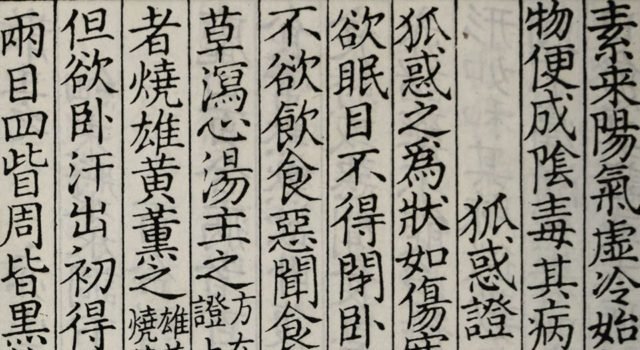 素来陽氣虛冷始
物便成陰毒其病
狐惑證
狐惑之爲狀如傷寒
欲眠目不得閉卧
不欲飲食惡聞食
草瀉心湯主之方在
證
者燒雄黃薰之雄
燒
但欲卧汗出初得
兩目四眥周皆黑